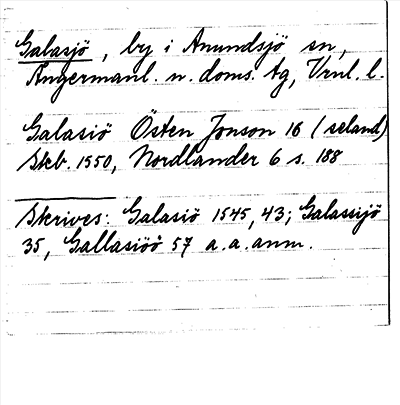 Galasjö, by i Anundsjö sn,
Ångermanl. n. doms. tg, Vrnl. l.
Galasiö Östen Jonson 16 (seland)
Skb. 1550, Nordlander 6 s. 188
Skrives: Galasiö 1545, 43; Galassijö
35, Gallasiöö 57 a.a. anm.